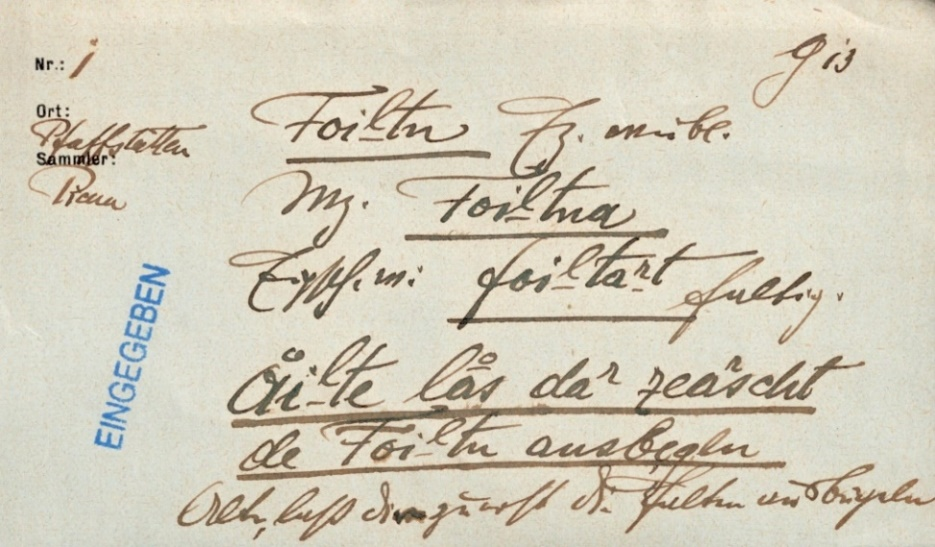 Nr.: 1
G 13
Ort:
Pfaffstätten
Sammler:
Foiltn Ez. weibl.
Mz. Foiltna
foiltart faltig.
Åilte lås dar zeascht
de Foiltn ausbegln
Alte, laß dir zuerst die Falten ausbügeln
EINGEGEBEN